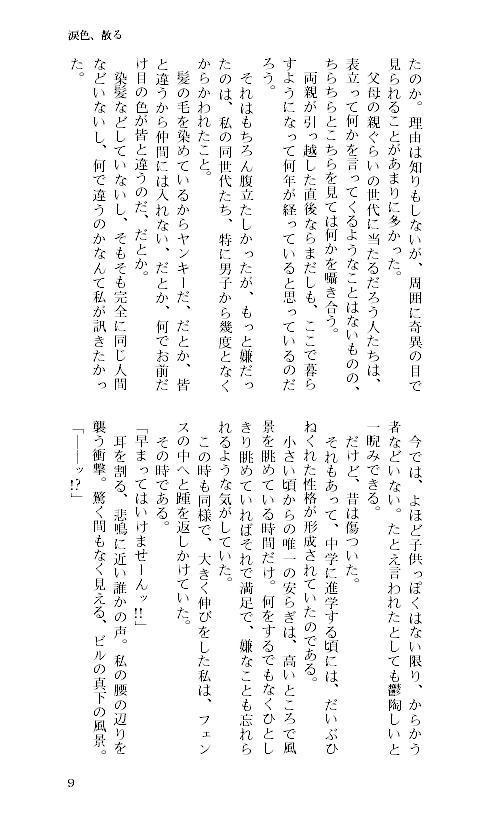 涙色、散る
たのか。理由は知りもしないが、周囲に奇異の目で
見られることがあまりに多かった。
　父母の親ぐらいの世代に当たるだろう人たちは、
表立って何かを言ってくるようなことはないものの、
ちらちらとこちらを見ては何かを囁き合う。
　両親が引っ越した直後ならまだしも、ここで暮ら
すようになって何年が経っていると思っているのだ
ろう。
　それはもちろん腹立たしかったが、もっと嫌だっ
たのは、私の同世代たち、特に男子から幾度となく
からかわれたこと。
　髪の毛を染めているからヤンキーだ、だとか、皆
と違うから仲間には入れない、だとか、何でお前だ
け目の色が皆と違うのだ、だとか。
　染髪などしていないし、そもそも完全に同じ人間
などいないし、何で違うのかなんて私が訊きたかっ
た。
　今では、よほど子供っぽくはない限り、からかう
者などいない。たとえ言われたとしても鬱陶しいと
一睨みできる。
　だけど、昔は傷ついた。
　それもあって、中学に進学する頃には、だいぶひ
ねくれた性格が形成されていたのである。
　小さい頃からの唯一の安らぎは、高いところで風
景を眺めている時間だけ。何をするでもなくひとし
きり眺めていればそれで満足で、嫌なことも忘れら
れるような気がしていた。
　この時も同様で、大きく伸びをした私は、フェン
スの中へと踵を返しかけていた。
　その時である。
「早まってはいけませーんッ!!」
　耳を割る、悲鳴に近い誰かの声。私の腰の辺りを
襲う衝撃。驚く間もなく見える、ビルの真下の風景。
「――ッ!?」
9